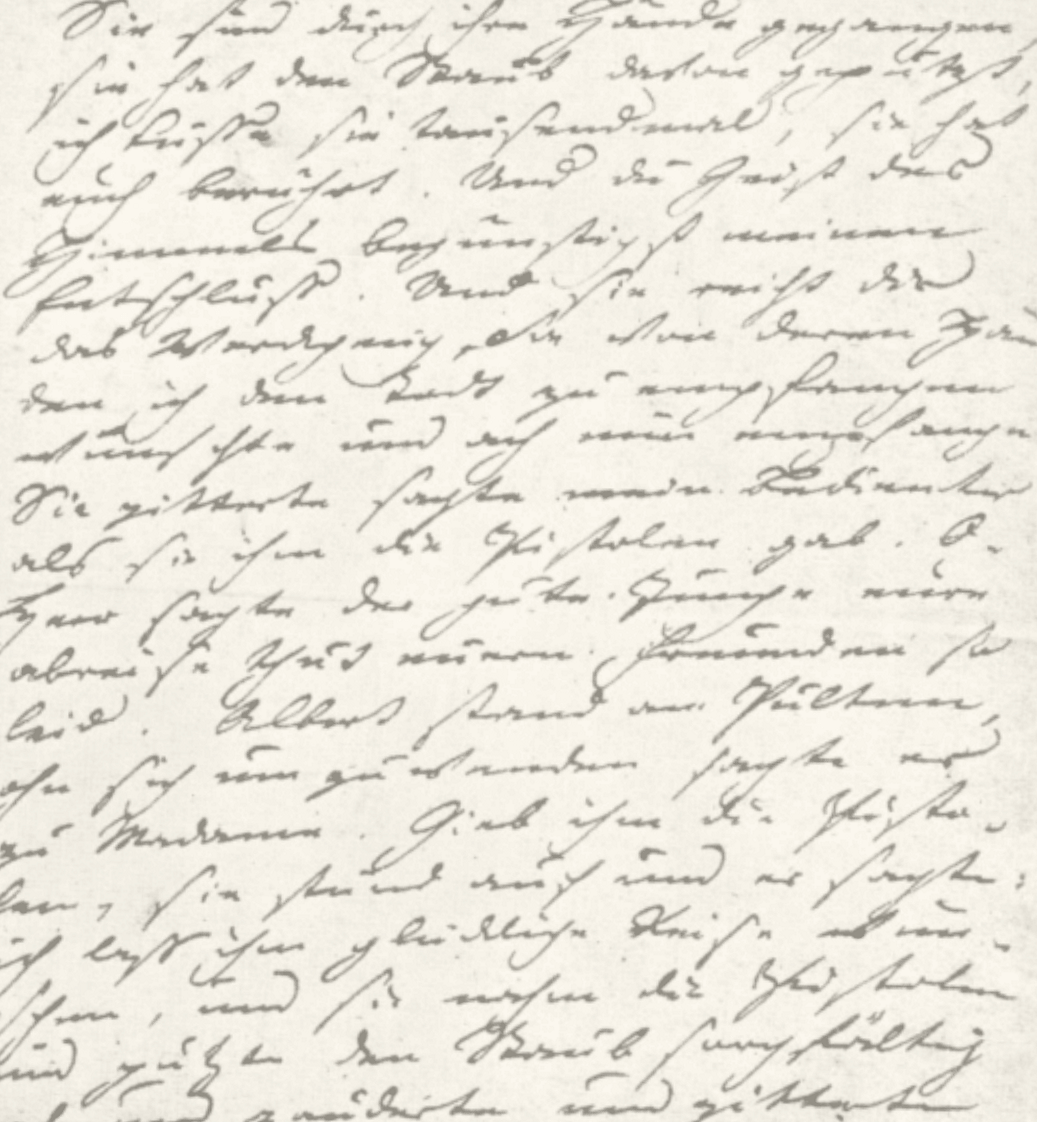 Sie sind durch ihre Hände gegangen,
sie hat den Staub davon geputzt,
ich küsse sie tausendmal, sie hat
euch berührt. Und du Geist des
Himmels begünstigst meinen
Entschluss. Und sie reicht dir
das Werckzeug, Sie von deren Hän
den ich den Todt zu empfangen
wünschte und ach nun empfange
Sie zitterte sagte mein Bedienter
als sie ihm die Pistolen gab. O.
Herr sagte der gute Junge eure
abreise thut euern Freunden so
leid. Albert stand am Pulten,
ohn sich um zu wenden sagte er
zu Madame. Gieb ihm die Pisto-
len, sie stund auf und er sagte:
ich lass ihm glückliche Reise wün-
schen, und sie nahm die Pistolen
und putzte den Staub sorgfältig
und zauderte und zitterte